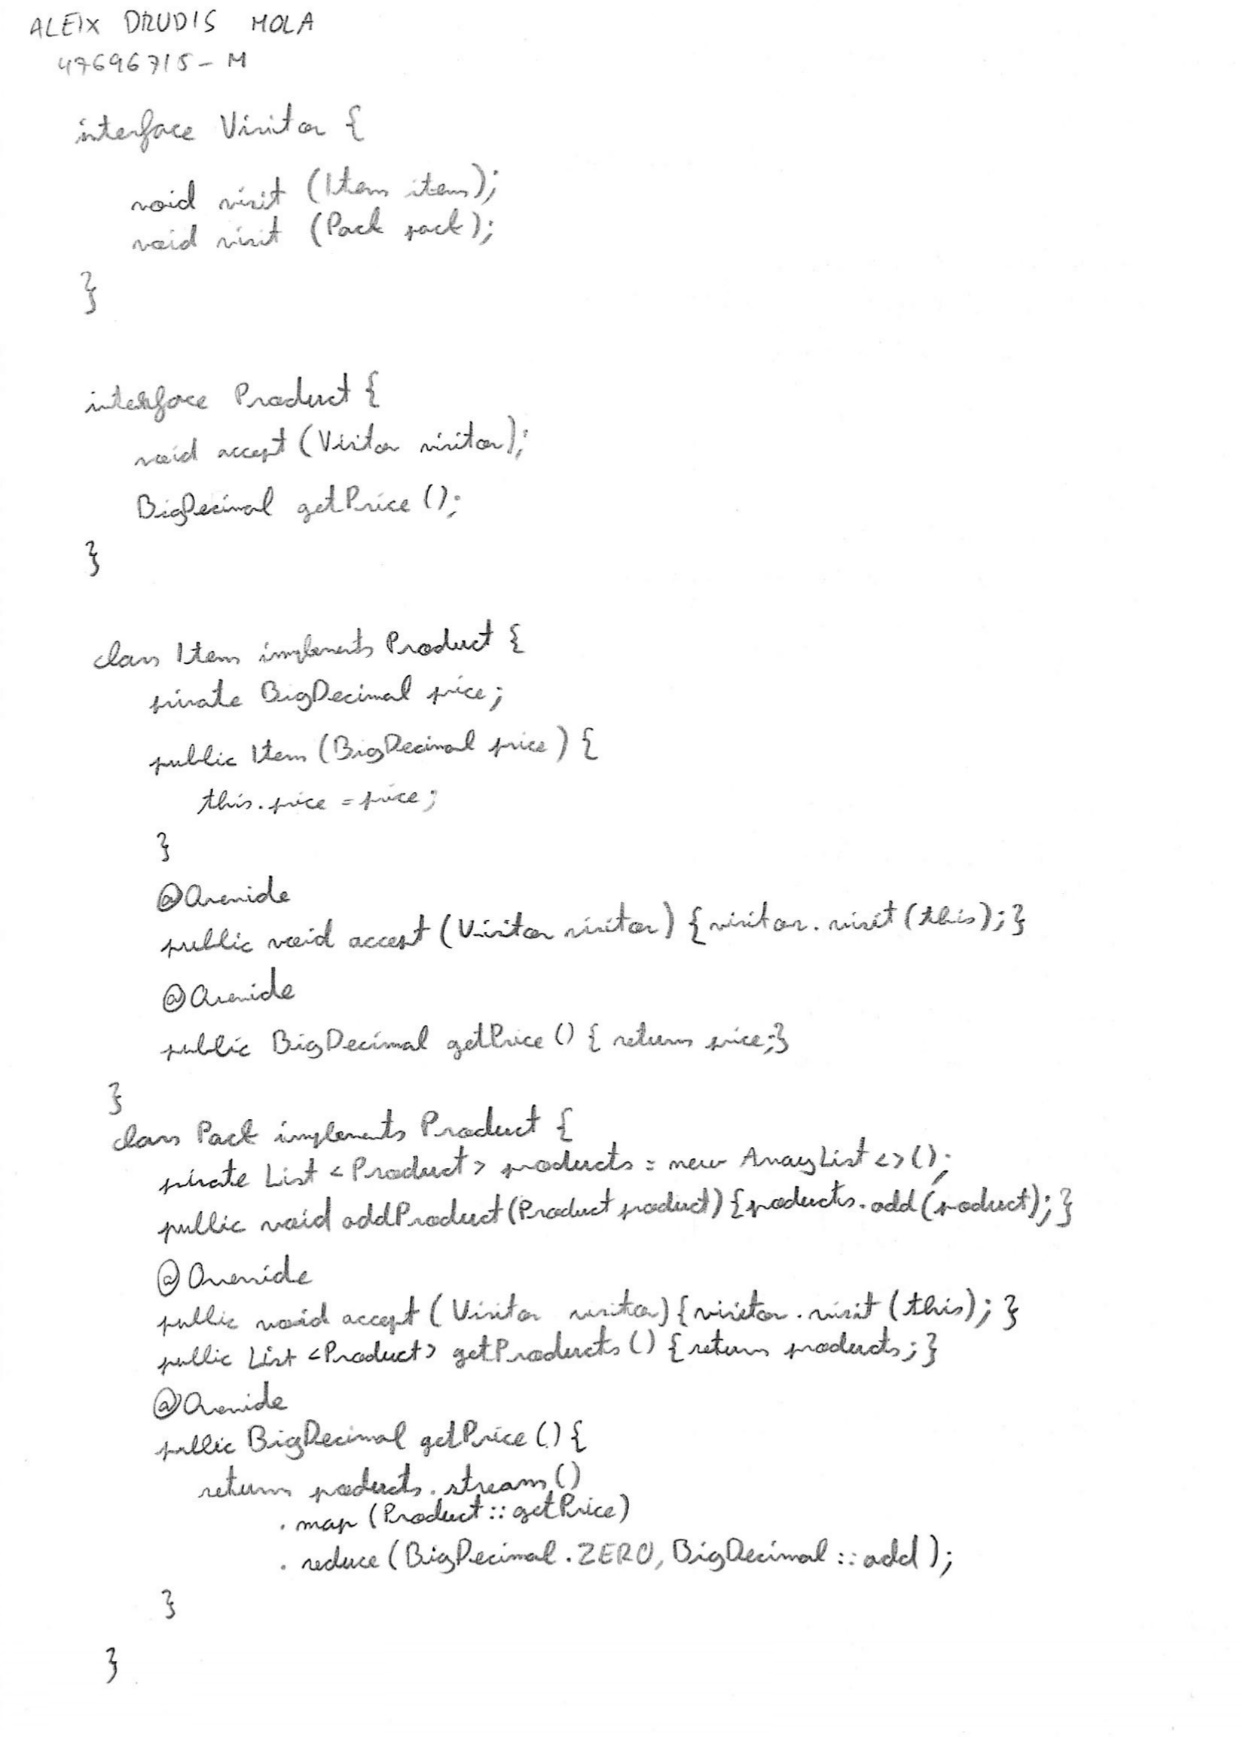 ALEIX DRUDIS MOLA
47696715-M
interface Visitor {
void visit (Item item);
void visit (Pack pack);
}
interface Product {
void accept (Visitor visitor);
BigDecimal getPrice ();
}
class Item implements Product {
private BigDecimal price;
public Item (BigDecimal price) {
this.price = price;
}
@Override
public void accept (Visitor visitor) { visitor.visit (this); }
@Override
public BigDecimal getPrice () { return price; }
}
class Pack implements Product {
private List <Product> products = new ArrayList <> ();
public void addProduct (Product product) { products.add (product); }
@Override
public void accept (Visitor visitor) { visitor.visit (this); }
public List <Product> getProducts () { return products; }
@Override
public BigDecimal getPrice () {
return products.stream ()
.map (Product :: getPrice)
.reduce (BigDecimal.ZERO, BigDecimal :: add);
}
}